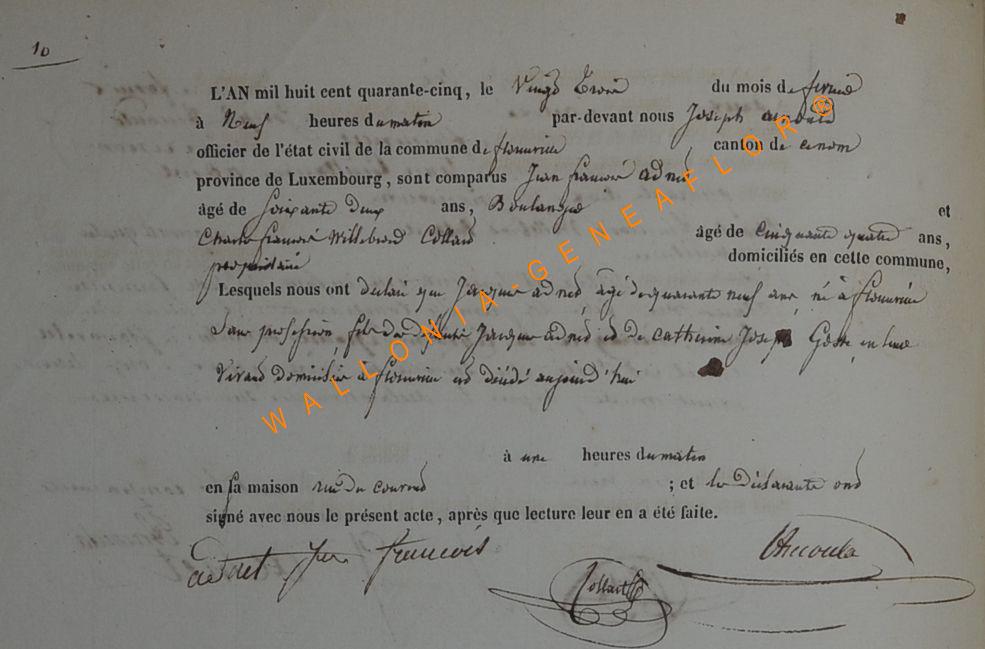 10
L'AN mil huit cent quarante-cinq, le Vingt Trois du mois de
à Neuf heures du matin par-devant nous Joseph
officier de l'état civil de la commune de florenville canton de
province de Luxembourg, sont comparus Jean françois
âgé de Soixante Deux ans, Boulanger et
Charles françois Willebrord Collard âgé de Cinquante quatre ans,
propriétaire domiciliés en cette commune,
Lesquels nous ont déclaré que Jacques âgé de quarante neuf ans né à florenville
Sans profession, fils de Jacques et de Catherine Joseph en leur
Vivant Domicilié à florenville est décédé aujourd'hui
à une heures du matin
en sa maison rue du ; et les Déclarants ont
signé avec nous le présent acte, après que lecture leur en a été faite.
francois
Collard
WALLONIA-GENEAFLOR®